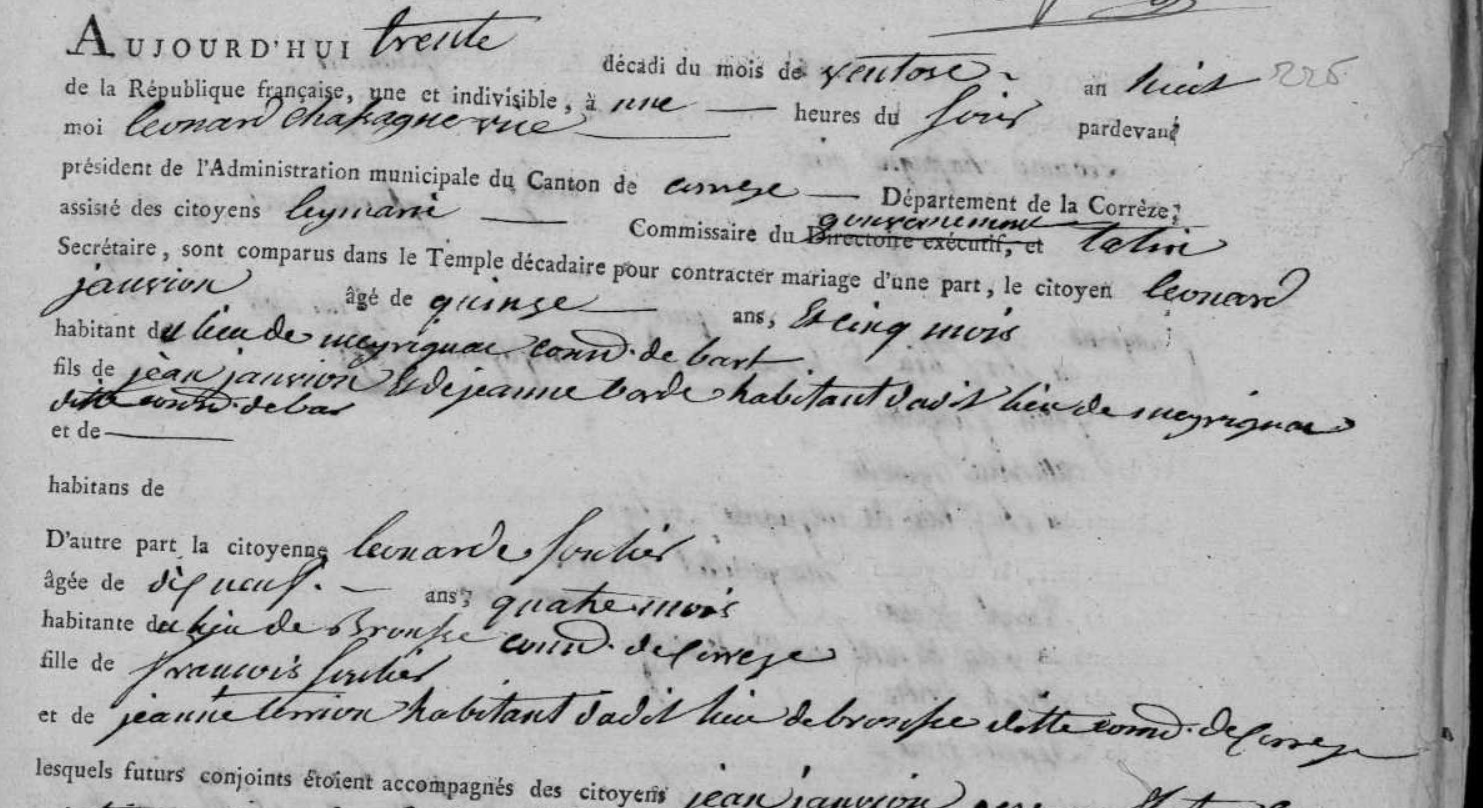 AUJOURD'HUI trente décadi du mois de ventose an huit 225
de la République française, une et indivisible, à une heures du soir pardevant
moi leonard chassagne vüe
président de l'Administration municipale du Canton de correze Département de la Corrèze,
assisté des citoyens leymarie Commissaire du Directoire exécutif, et gouvernement
Secrétaire, sont comparus dans le Temple décadaire pour contracter mariage d'une part, le citoyen leonard
jauvion âgé de quinze ans, et cinq mois
habitant du lieu de meyrignac comne. de bart
fils de jean jauvion et de jeanne borde habitant dudit lieu de meyrignac
ditte comne. de bar
et de
habitans de
D'autre part la citoyenne leonarde soulier
âgée de dix neuf ans, quatre mois
habitante du lieu de Brousse comne. de Correze
fille de francois soulier
et de jeanne terrion habitant dudit lieu de brousse ditte comne. de Correze
lesquels futurs conjoints étoient accompagnés des citoyens jean jauvion